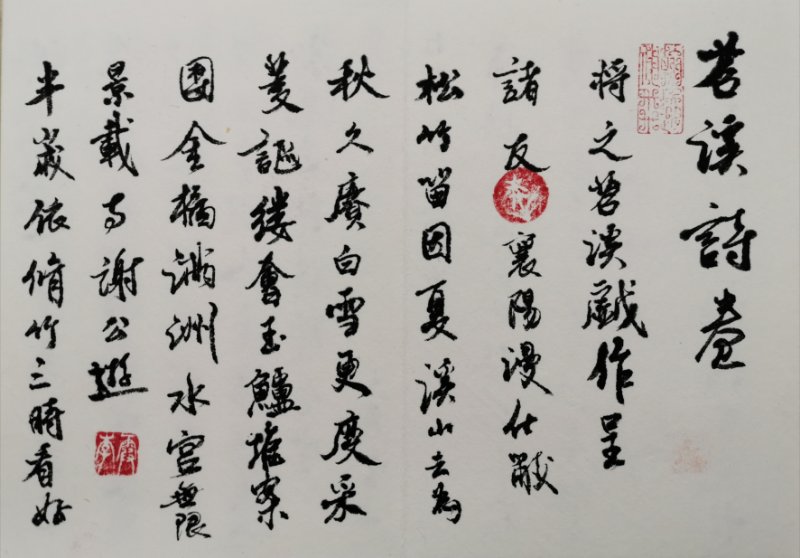 苕溪詩卷
将之苕溪戲作呈
諸友 襄陽漫仕黻
松竹留因夏溪山去為
秋久賡白雪更度采
菱謳縷會玉鱸堆案
團金橘滿洲水宮無限
景載与謝公遊
半歲依脩竹三時看好